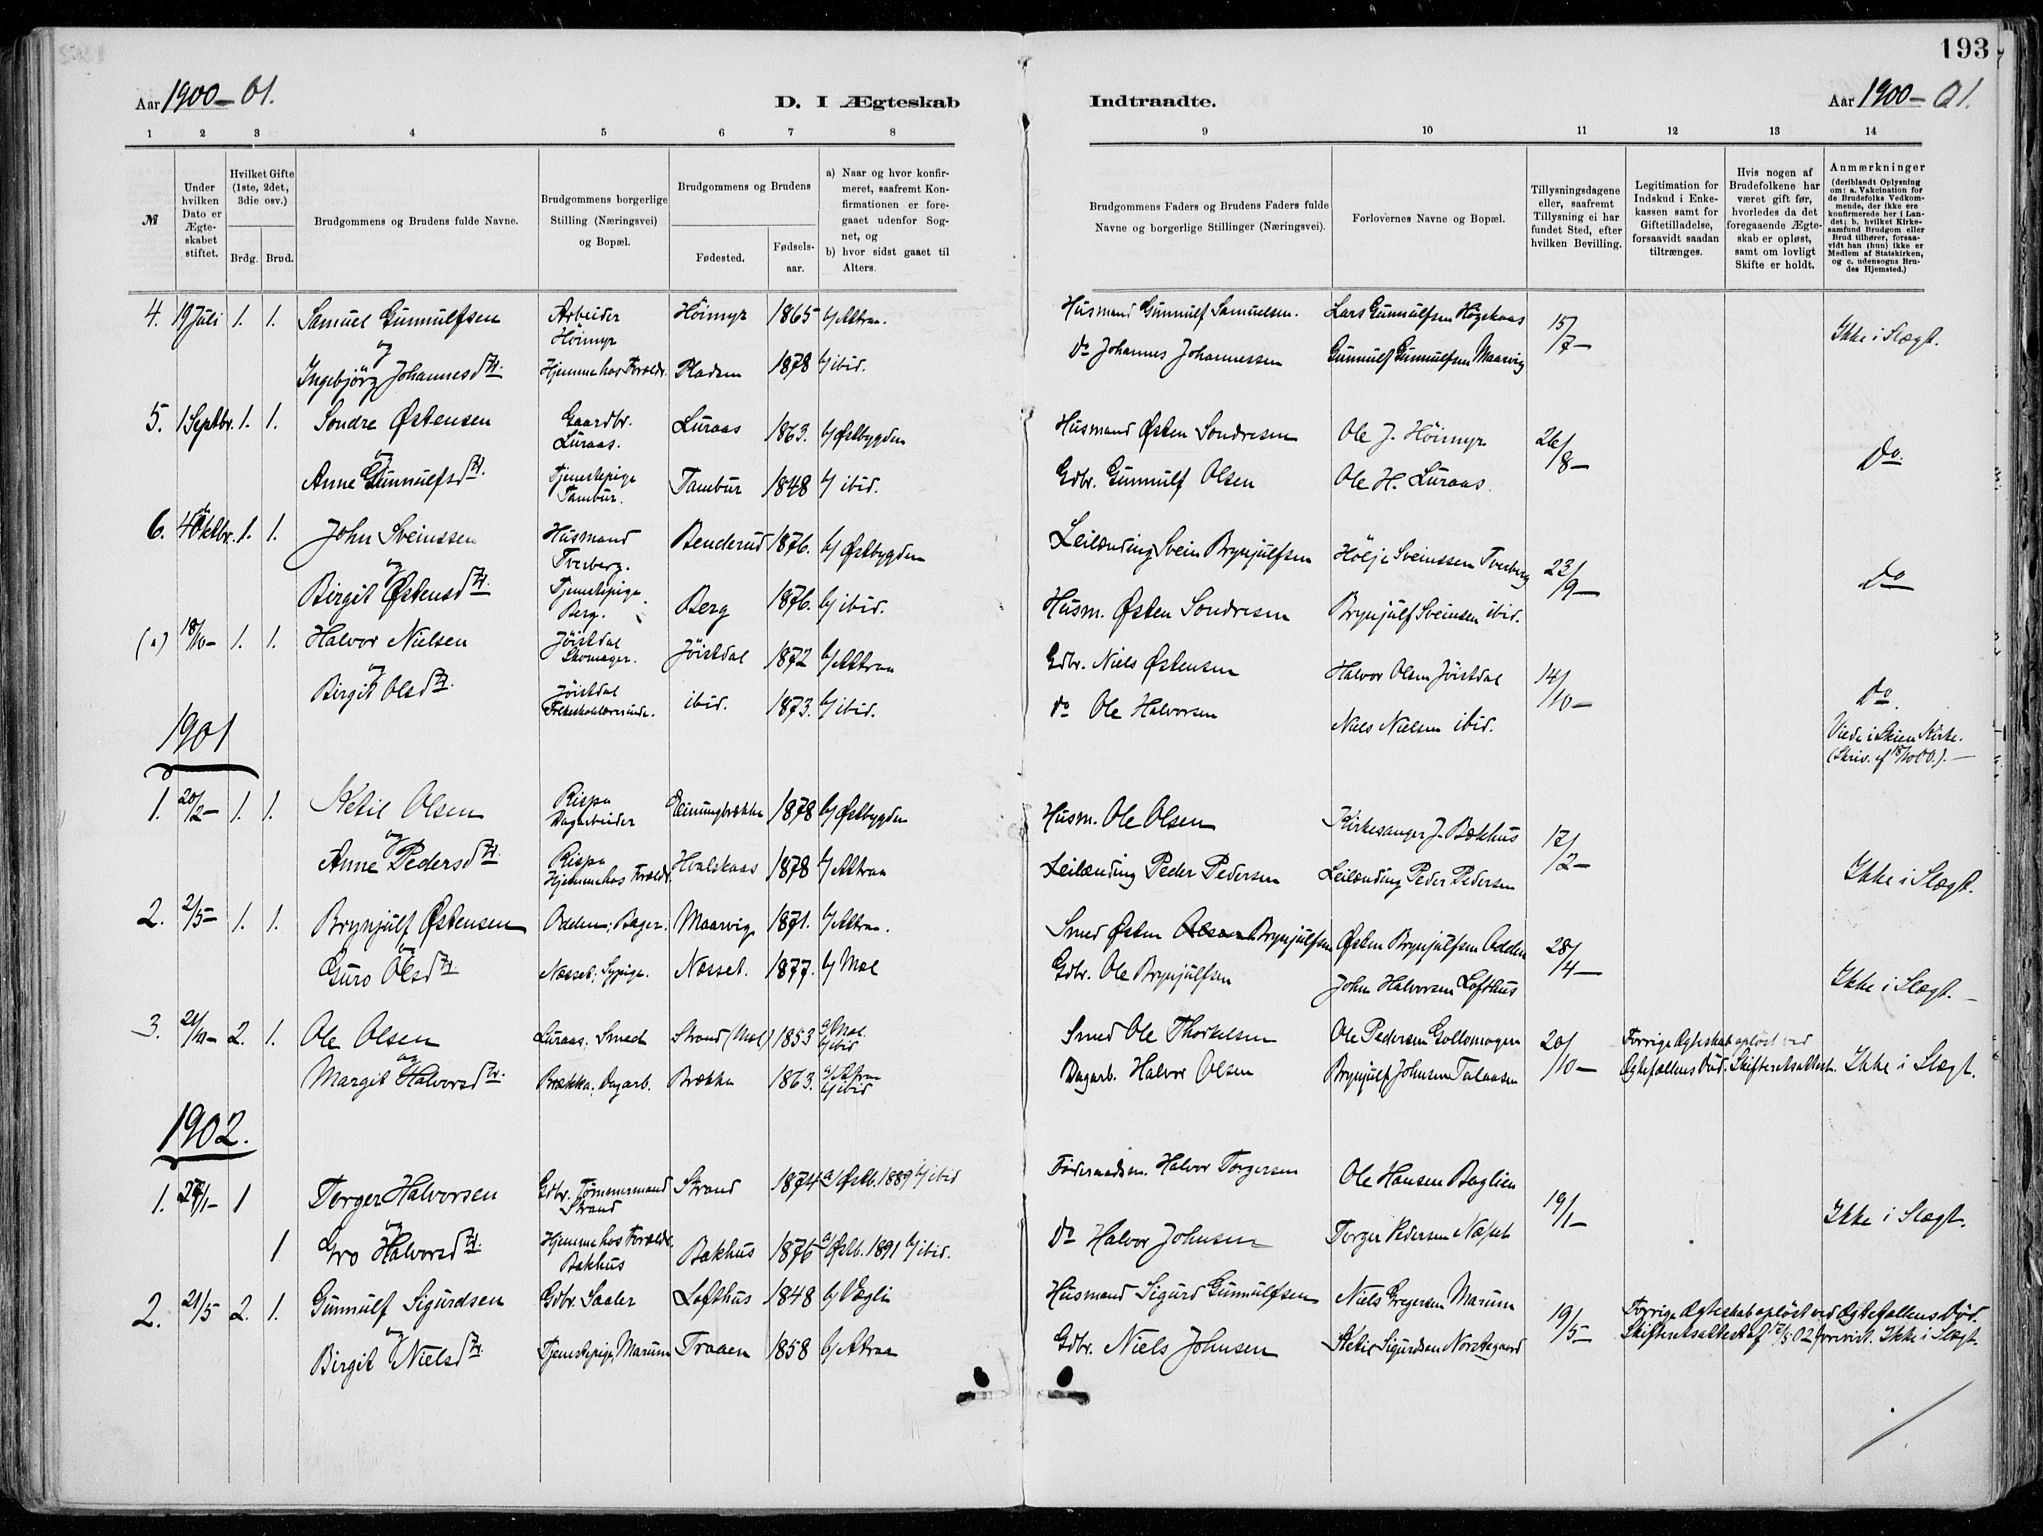 193
Aar 1900-01.
D. I Ægteskab
Indtraadte.
Aar 1900-01.
1 2 3 4 5 6 7 8 9 10 11 12 13 14
№
Under hvilken Dato er Ægteskabet stiftet.
Hvilket Gifte (1ste, 2det, 3die osv.)
Brdg. Brud.
Brudgommens og Brudens fulde Navne.
Brudgommens borgerlige Stilling (Næringsvei) og Bopæl.
Brudgommens og Brudens
Fødested.
Fødselsaar.
a) Naar og hvor konfirmeret, saafremt Konfirmationen er foregaaet udenfor Sognet, og
b) hvor sidst gaaet til Alters.
Brudgommens Faders og Brudens Faders fulde Navne og borgerlige Stillinger (Næringsvei).
Forlovernes Navne og Bopæl.
Tillysningsdagene eller, saafremt Tillysning ei har fundet Sted, efter hvilken Bevilling.
Legitimation for Indskud i Enkekassen samt for Giftetilladelse, forsaavidt saadan tiltrænges.
Hvis nogen af Brudefolkene har været gift før, hvorledes da det foregaaende Ægteskab er opløst, samt om lovligt Skifte er holdt.
Anmærkninger (deriblandt Oplysning om: a. Vakcination for de Brudefolks Vedkommende, der ikke ere konfirmerede her i Landet; b. hvilket Kirkesamfund Brudgom eller Brud tilhører, forsaavidt han (hun) ikke er Medlem af Statskirken, og c. udensogns Brudes Hjemsted.)
4. 19 Juli 1. 1. Samuel Gunnulfsen Arbeider Höimyr Höimyr 1865 b/ Attraa. Husmand Gunnulf Samuelsen. Lars Gunnulfsen Høgskaas 15/7- Ikke i Slægt.
og
Ingebjörg Johannesdtr. Hjemme hos Foreldr. Pladsen 1878 b/ ibid. Do Johannes Johannessen Gunnulf Gunnulfsen Maarvig
5. 1 Septbr. 1. 1. Sondre Østensen Gaardbr. Luraas. Luraas 1863. b/ Østbygden Husmand Østen Sondresen Ole J. Höimyr 26/8- Do.
og
Anne Gunnulfsdtr. Tjenestepige Tambur. Tambur 1848 b/ ibid. Gdbr. Gunnulf Olsen Ole H. Luraas.
6. 4 Oktbr. 1. 1. John Sveinssen Husmand Tverberg. Benderud 1876. b/ Østbygden Leilænding Svein Brynjulfsen Hölje Sveinssen Tverberg 23/9- Do
og
Birgit Østensdtr. Tjenestepige Berg. Berg 1876. b/ ibid. Husm. Østen Sondresen Brynjulf Sveinsen ibid.
18/10- 1. 1. Halvor Nielsen Jöistdal Skomager. Jöistdal 1872 b/ Attraa Gdbr. Niels Østensen Halvor Olsen Jöistdal 14/10- Do.
og
Birgit Olsdtr. Jöistdal Folkeskolelærerinde. ibid. 1873. b/ ibid. do Ole Halvorsen Niels Nielsen ibid.
Viede i Skien Kirke.
(Skriv. af 18/10 00.).-
1901
1. 20/2- 1. 1. Ketil Olsen Rispa Dagarbeider 1878 b/ Østbygden Husm. Ole Olsen Kirkesanger J. Bækhus 17/2-
og
Anne Pedersdtr. Rispa Hjemme hos Foreldr. Hvalskaas 1878 b/ Attraa Leilænding Peder Pedersen Leilænding Peder Pedersen Ikke i Slægt.
2. 2/5- 1. 1. Brynjulf Østensen Odden; Bager. Maarvig 1871. b/ Attraa. Smed Østen Olsen Brynjulfsen Østen Brynjulfsen Odden 28/4-
og
Guro Olsdtr. Næsset; Sypige. Næsset. 1877. b/ Mæl Gdbr. Ole Brynjulfsen John Halvorsen Lofthus Ikke i Slægt.-
3. 21/10- 2. 1. Ole Olsen Luraas; Smed Strand (Mæl) 1853 a/ Mæl. b/ ibid Smed Ole Thorkelsen Ole Pedersen Gollomogen 20/10- Forrige Ægteskab opløst ved
og
Margit Halvorsdtr. Brækka; Dagarb. Brækka 1863. a/ Attraa b/ ibid Dagarb. Halvor Olsen Brynjulf Johnsen Talaasen Ægtefællens Død. Skifteretsattest. Ikke i Slægt.
1902.
1. 27/1- 1 Torger Halvorsen Gdbr. Tømmermand Strand Strand 1874 a/ Østb. 1889 b/ ibid Föderaadsm. Halvor Torgersen Ole Hansen Baglien 19/1- Ikke i Slægt.
og
1 Gro Halvorsdtr. Hjemme hos Foreldr. Bakhus Bakhus 1876 a/ Østb. 1891 b/ ibid. Do Halvor Johnsen Torger Pedersen Næset
2. 21/5 2. 1. Gunnulf Sigurdsen Gdbr. Saaler Lofthus 1848 b/ Vegli Husmand Sigurd Gunnulfsen Niels Gregersen Marum 19/5- Forrige Ægteskab opløst ved Ægtefællens Død.
og
Birgit Nielsdtr. Tjenestepige, Marum Traaen 1858 b/ Attraa Gdbr. Niels Johnsen Ketil Sigurdsen Norstegaard Skifteretsattest af 17/5 02 forevist. Ikke i Slægt.